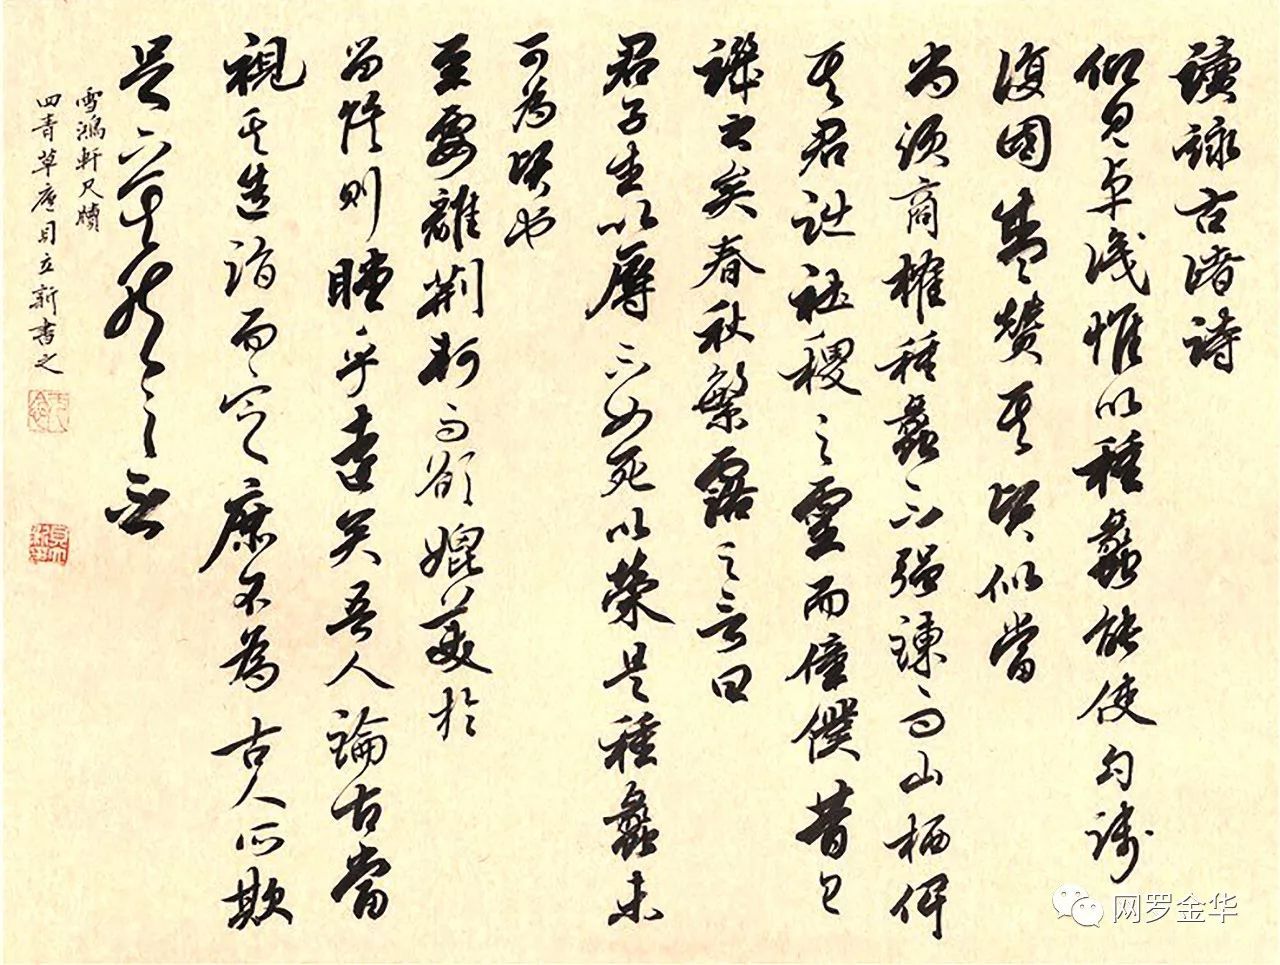 讀詠古諸詩
似見卓識惟以種蠡能使勾踐
復國甚贊其賢似當
尚須商榷種蠡不强諫而山栖俾
其君詘社稷之靈而僮僕昔已
譏之矣春秋繁露之言曰
君子生以辱不如死以榮是種蠡未
可為賢也
至要離荊軻而欲媲美於
當時則瞠乎遠矣吾人論古當
視其造詣而定庶不為古人所欺
是六者然之否
雪鴻軒尺牘
四青草庵 立新書之
网罗金华